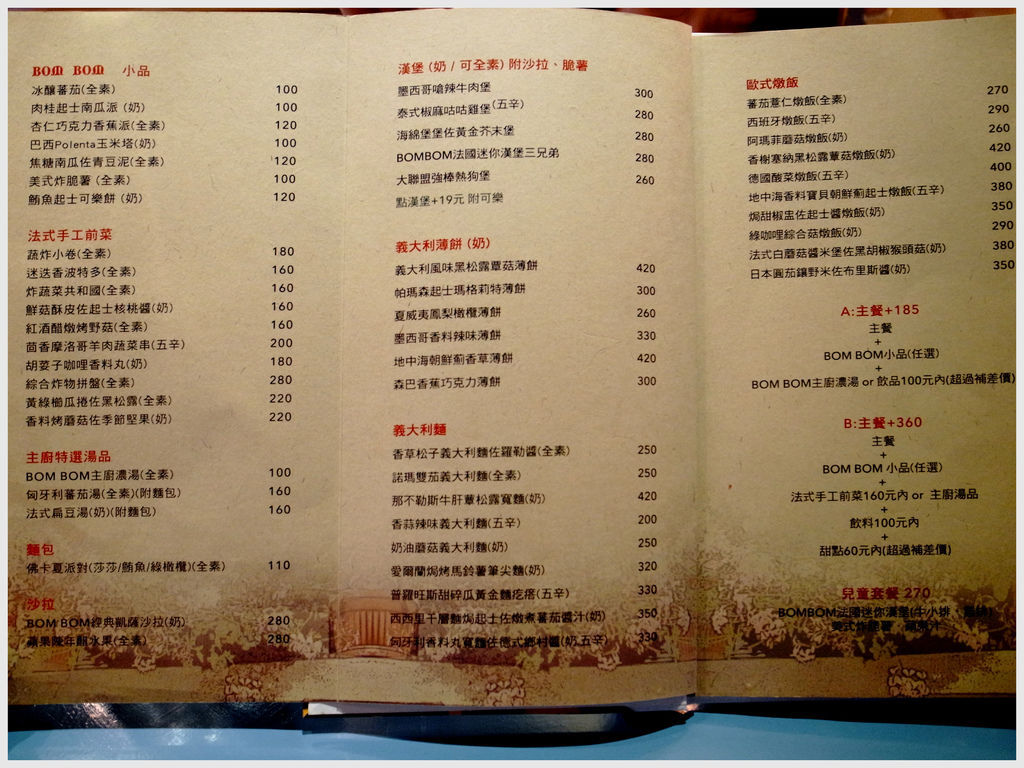 BOM BOM 小品
冰釀蕃茄(全素) 100
肉桂起士南瓜派 (奶) 100
杏仁巧克力香蕉派(全素) 120
巴西Polenta玉米塔(奶) 100
焦糖南瓜佐青豆泥(全素) 120
美式炸脆薯 (全素) 100
鮪魚起士可樂餅 (奶) 120
法式手工前菜
蔬炸小卷(全素) 180
迷迭香波特多(全素) 160
炸蔬菜共和國(全素) 160
鮮菇酥皮佐起士核桃醬(奶) 160
紅酒醋燉烤野菇(全素) 160
茴香摩洛哥羊肉蔬菜串(五辛) 200
胡荽子咖哩香料丸(奶) 180
綜合炸物拼盤(全素) 280
黃綠櫛瓜捲佐黑松露(全素) 220
香料烤蘑菇佐季節堅果(奶) 220
主廚特選湯品
BOM BOM主廚濃湯(全素) 100
匈牙利蕃茄湯(全素)(附麵包) 160
法式扁豆湯(奶)(附麵包) 160
麵包
佛卡夏派對(莎莎/鮪魚/綠橄欖)(全素) 110
沙拉
BOM BOM經典凱薩沙拉(奶) 280
蘋果陳年醋水果(全素) 280
漢堡 (奶 / 可全素) 附沙拉、脆薯
墨西哥嗆辣牛肉堡 300
泰式椒麻咕咕雞堡(五辛) 280
海綿堡堡佐黃金芥末堡 280
BOMBOM法國迷你漢堡三兄弟 280
大聯盟強棒熱狗堡 260
點漢堡+19元 附可樂
義大利薄餅 (奶)
義大利風味黑松露蕈菇薄餅 420
帕瑪森起士瑪格莉特薄餅 300
夏威夷鳳梨橄欖薄餅 260
墨西哥香料辣味薄餅 330
地中海朝鮮薊香草薄餅 420
森巴香蕉巧克力薄餅 300
義大利麵
香草松子義大利麵佐羅勒醬(全素) 250
諾瑪雙茄義大利麵(全素) 250
那不勒斯牛肝蕈松露寬麵(奶) 420
香蒜辣味義大利麵(五辛) 200
奶油蘑菇義大利麵(奶) 250
愛爾蘭焗烤馬鈴薯筆尖麵(奶) 320
普羅旺斯甜碎瓜黃金麵疙瘩(五辛) 330
西西里千層麵焗起士佐燉煮蕃茄醬汁(奶) 350
匈牙利香料丸寬麵佐德式鄉村醬(奶,五辛) 330
歐式燉飯 270
蕃茄薏仁燉飯(全素) 290
西班牙燉飯(五辛) 260
阿瑪菲蘑菇燉飯(奶) 420
香榭塞納黑松露蕈菇燉飯(奶) 400
德國酸菜燉飯(五辛) 380
地中海香料寶貝朝鮮薊起士燉飯(五辛) 350
焗甜椒盅佐起士醬燉飯(奶) 290
綠咖哩綜合菇燉飯(奶) 380
法式白蘑菇醬米堡佐黑胡椒猴頭菇(奶) 350
日本圓茄鑲野米佐布里斯醬(奶)
A:主餐+185
主餐
+
BOM BOM小品(任選)
+
BOM BOM主廚濃湯 or 飲品100元內(超過補差價)
B:主餐+360
主餐
+
BOM BOM 小品(任選)
+
法式手工前菜160元內 or 主廚湯品
+
飲料100元內
+
甜點60元內(超過補差價)
兒童套餐 270
BOMBOM法國迷你漢堡(牛小排
美式炸脆薯